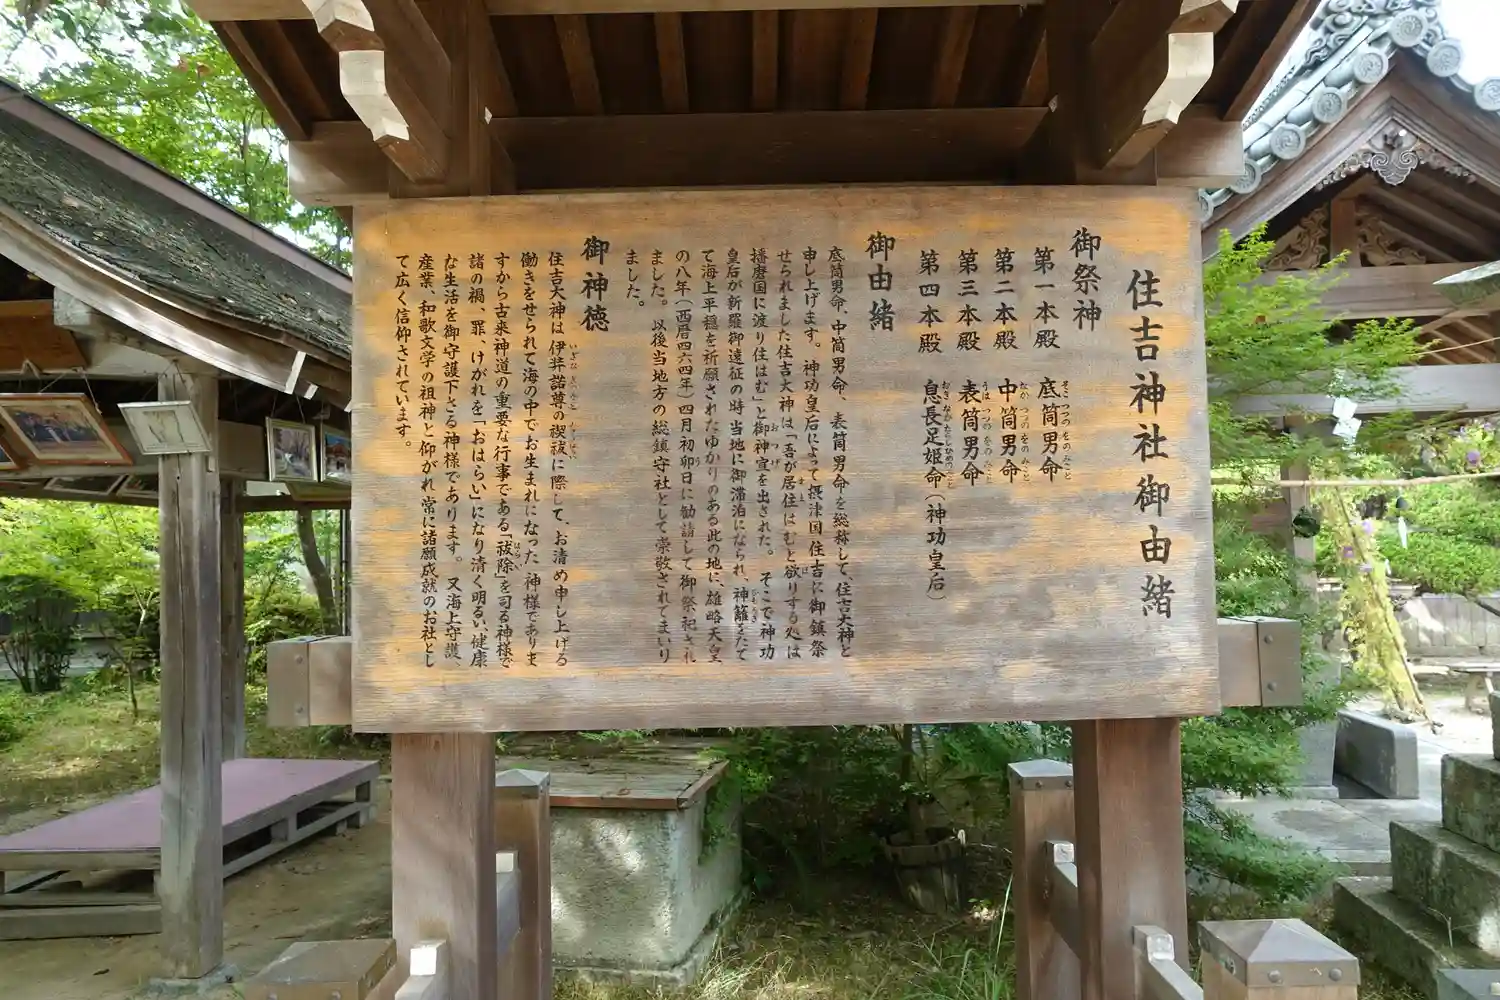 住吉神社御由緒
御祭神
第一本殿 底筒男命
第二本殿 中筒男命
第三本殿 表筒男命
第四本殿 息長足姫命(神功皇后)
御由緒
底筒男命、中筒男命、表筒男命を総称して、住吉大神と
申し上げます。神功皇后によって摂津国住吉に御鎮祭
せられました住吉大神は「吾が居住はむと欲りする処は
播磨国に渡り住はむ」と御神宣を出された。そこで神功
皇后が新羅御遠征の時当地に御滞泊になられ、神籬をたて
て海上平穏を祈願されたゆかりのある此の地に、雄略天皇
の八年(西暦四六四年)四月初卯日に勧請して御祭祀され
ました。以後当地方の総鎮守社として崇敬されてまいり
ました。
御神徳
住吉大神は伊弉諾尊の禊祓に際して、お清め申し上げる
働きをせられて海の中でお生まれになった神様でありま
すから古来神道の重要な行事である「祓除」を司る神様で
諸の禍、罪、けがれを「おはらい」になり清く明るい健康
な生活を御守護下さる神様であります。又海上守護、
産業、和歌文学の祖神と仰がれ常に諸願成就のお社とし
て広く信仰されています。